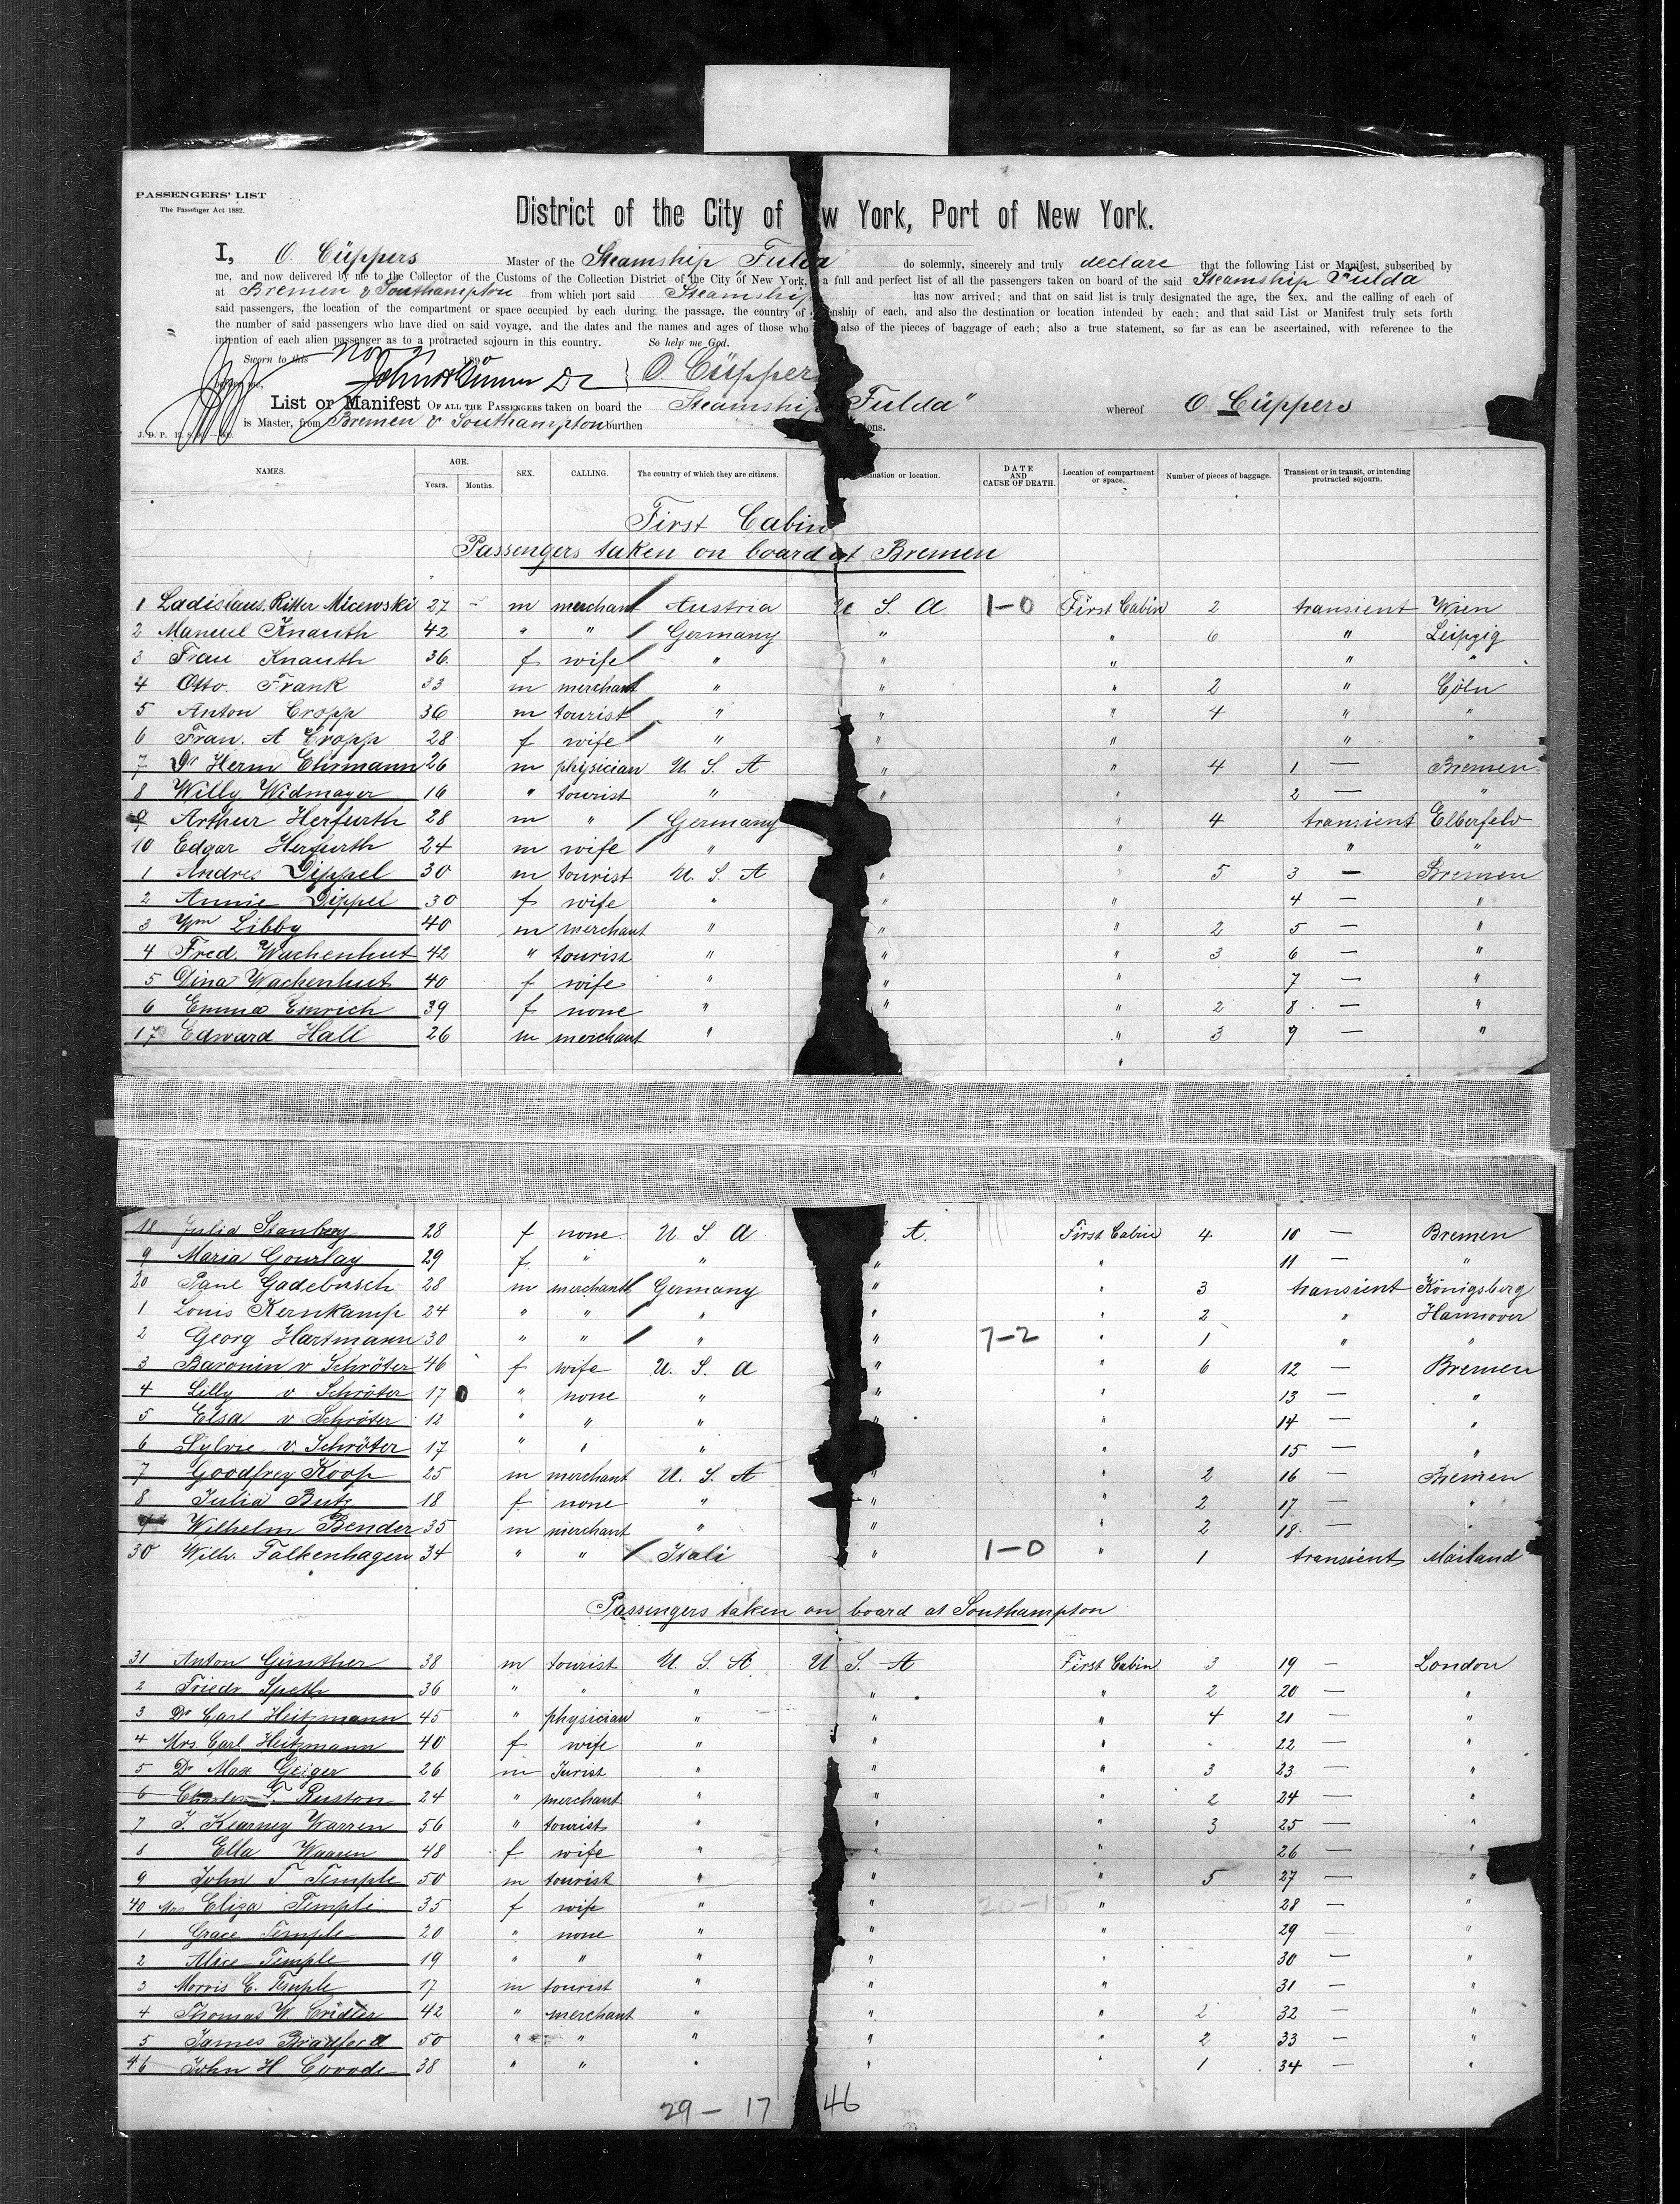 PASSENGERS' LIST
The Passenger Act 1882.
District of the City of New York, Port of New York.
I, O. Cüppers Master of the Steamship Fulda do solemnly, sincerely and truly declare that the following List or Manifest, subscribed by
me, and now delivered by me to the Collector of the Customs of the Collection District of the City of New York, a full and perfect list of all the passengers taken on board of the said Steamship "Fulda
at Bremen & Southampton from which port said Steamship has now arrived; and that on said list is truly designated the age, the sex, and the calling of each of
said passengers, the location of the compartment or space occupied by each during the passage, the country of citizenship of each, and also the destination or location intended by each; and that said List or Manifest truly sets forth
the number of said passengers who have died on said voyage, and the dates and the names and ages of those who also of the pieces of baggage of each; also a true statement, so far as can be ascertained, with reference to the
intention of each alien passenger as to a protracted sojourn in this country. So help me God.
Sworn to this Nov 1890
O. Cüppers
List or Manifest OF ALL THE PASSENGERS taken on board the Steamship Fulda" whereof O. Cüppers
is Master, from Bremen & Southampton burthen tons.
NAMES. AGE. Years. Months. SEX. CALLING. The country of which they are citizens. destination or location. DATE AND CAUSE OF DEATH. Location of compartment or space. Number of pieces of baggage. Transient or in transit, or intending protracted sojourn.
First Cabin
Passengers taken on board at Bremen
1 Ladislaus Ritter Micewski 27 - m merchant Austria U S. A 1-0 First Cabin 2 transient Wien
2 Manuel Knauth 42 " " Germany " " 6 " Leipzig
3 Frau Knauth 36 f wife " " " " "
4 Otto Frank 33 m merchant " " " 2 " Cöln
5 Anton Cropp 36 m tourist " " " 4 " "
6 Frau. A Cropp 28 f wife " " " " "
7 Dr Herm Ehrmann 26 m physician U. S. A " " 4 1 — Bremen
8 Willy Widmayer 16 " tourist " " " 2 — "
9 Arthur Herfurth 28 m " Germany " 4 transient Elberfeld
10 Edgar Herfurth 24 m wife " " " "
1 Andres Dippel 30 m tourist U. S. A " " 5 3 — Bremen
2 Annie Dippel 30 f wife " " " 4 — "
3 Wm Libby 40 m merchant " " " 2 5 — "
4 Fred. Wachenhut 42 " tourist " " " 3 6 — "
5 Dina Wachenhut 40 f wife " " " 7 — "
6 Emma Emrich 39 f none " " " 2 8 — "
17 Edward Hall 26 m merchant " " 3 9 — "
18 Julia Stanbery 28 f none U. S. A A. First Cabin 4 10 — Bremen
9 Maria Gourlay 29 f " " " " 11 — "
20 Paul Gadebusch 28 m merchant Germany " " 3 transient Königsberg
1 Louis Kernkamp 24 " " " " " 2 " Hannover
2 Georg Hartmann 30 " " " " 7-2 " 1 " "
3 Baronin v Schröter 46 f wife U. S. A " " 6 12 — Bremen
4 Lilly v Schröter 17 " none " " " 13 — "
5 Elsa v Schröter 12 " " " " " 14 — "
6 Sylvie v. Schröter 17 " " " " 15 — "
7 Goodfrey Koop 25 m merchant U. S. A " " 2 16 — Bremen
8 Julia Butz 18 f none " " " 2 17 — "
9 Wilhelm Bender 35 m merchant " " " 2 18. — "
30 Wilh. Falkenhagen 34 " " Itali " 1-0 " 1 transient Mailand
Passengers taken on board at Southampton
31 Anton Günther 38 m tourist U. S. A U S. A First Cabin 3 19 — London
2 Friedr Speth 36 " " " " " 2 20 — "
3 Dr Carl Heitzmann 45 " physician " " " 4 21 — "
4 Mrs. Carl Heitzmann 40 f wife " " " 22 — "
5 Dr Max Geiger 26 m Jurist " " " 3 23 — "
6 Charles T. Ruston 24 " merchant " " " 2 24 — "
7 J. Kearney Warren 56 " tourist " " " 3 25 — "
8 Ella Warren 48 f wife " " " 26 — "
9 John T Temple 50 m tourist " " " 5 27 — "
40 Mrs Eliza Temple 35 f wife " " 20-15 " 28 — "
1 Grace Temple 20 " none " " " 29 — "
2 Alice Temple 19 " " " " " 30 — "
3 Morris C. Temple 17 m tourist " " " 31 — "
4 Thomas W. Cridler 42 " merchant " " " 2 32 — "
5 James Bradford 50 " " " " " 2 33 — "
46 John H 38 " " " " " 1 34 — "
29 - 17 46